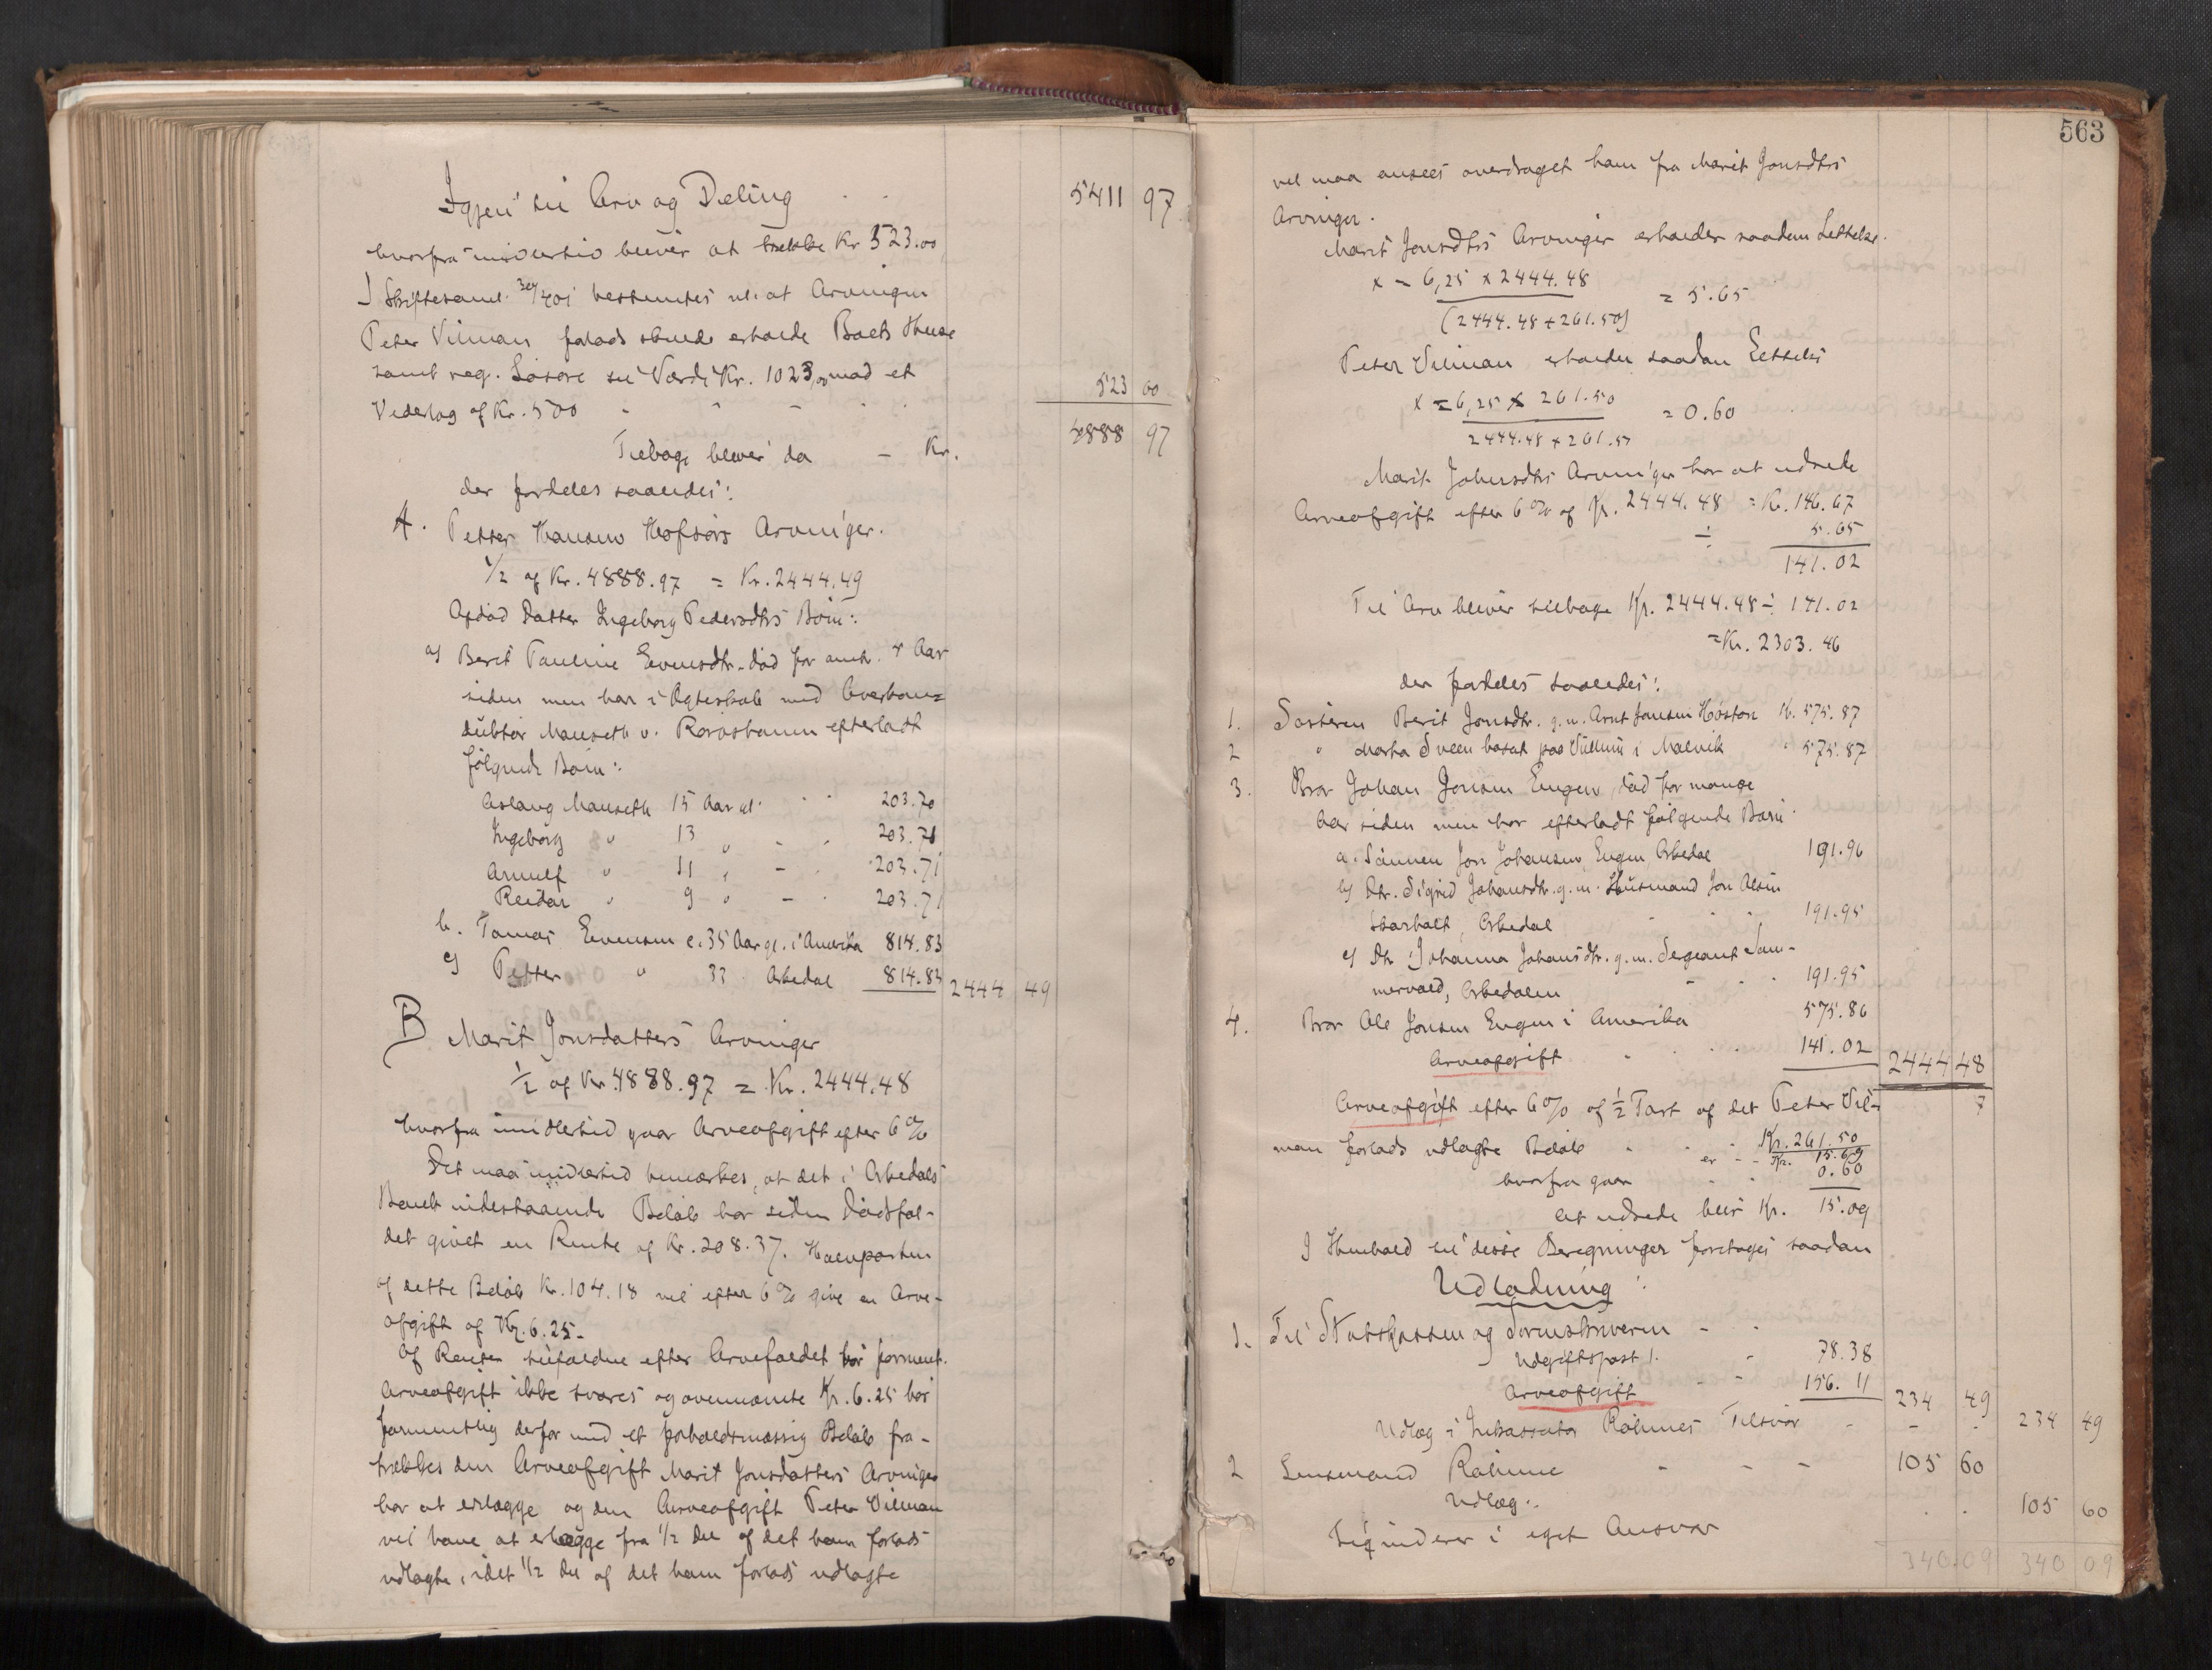 Igjen til Arv og Deling - - 5411 97
hvorfra imidlertid bliver at trække Kr 523.00
I Skiftesaml. 30/4 01 bestemtes nl. at Arvingen
Peter Vilman forlods skulde erholde Baclts Huse
samt reg. Løsøre til Værdi Kr. 1023,00 mod et
Vederlag af Kr. 500 - - - 523 00
Tilbage bliver da - Kr. 4888 97
der fordeles saaledes:
A. Petter Hansens Hofsørs Arvinger.
1/2 af Kr. 4888.97 = Kr. 2444.49
Afdød Datter Ingeborg Pedersdtrs Børn:
a) Berit Pauline Evensdtr. død for omtr. 4 Aar
siden men har i Ægteskab med Overkon=
duktør Mauseth v. Rørosbanen efterladt
følgende Børn:
Aslaug Mauseth 15 Aar gl. - - 203.70
Ingeborg " 13 " - - 203.71
Arnulf " 11 " - - 203.71
Reidar " 9 " - - 203.71
b. Tomas Evensen c. 35 Aar gl. i Amerika 814.83
c) Petter " 33 Orkedal 814.83 2444 49
B Marit Jonsdatters Arvinger
1/2 af Kr. 4888.97 = Kr. 2444.48
hvorfra imidlertid gaar Arveafgift efter 6 %
Det maa imidlertid bemærkes, at det i Orkedals
Bank indestaaende Beløb har siden Dødsfal-
det givet en Rente af Kr. 208.37. Halvparten
af dette Beløb Kr. 104.18 vil efter 6 % give en Arve-
afgift af Kr. 6.25-
Af Renter tilfaldne efter Arvefaldet bør forment.
Arveafgift ikke svares og ovennævnte Kr. 6.25 bør
formentlig derfor med et forholdsmæssig Beløb fra-
trækkes den Arveafgift Marit Jonsdatters Arvinger
har at erlægge og den Arveafgift Peter Vilman
vil have at erlægge fra 1/2 Del af det ham forlods
udlagte, idet 1/2 Del af det ham forlods udlagte
563
vel maa ansees overdraget ham fra Marit Jonsdtrs
Arvinger.
Marit Jonsdtrs Arvinger erholder saadan Lettelse.
x = 6,25 x 2444.48 = 5.65
(2444.48 + 261.50)
Peter Vilman erholder saadan Lettelse
x = 6,25 x 261.50 = 0.60
2444.48 + 261.50
Marit Johnsdtrs Arvinger har at udrede
Arveafgift efter 6 % af Kr. 2444.48 = Kr. 146.67
÷ 5.65
141.02
Til Arv bliver tilbage Kr. 2444.48 ÷ 141.02
= Kr. 2303.46
der fordeles saaledes:
1. Søsteren Berit Jonsdtr. g.m. Arnt Jonsen Høston Kr. 575.87
2 " Marta Sveen bosat paa i Malvik " 575.87
3. Bror Johan Jonsen Engen død for mange
Aar siden men har efterladt følgende Børn
a. Sønnen Jon Johansen Engen Orkedal 191.96
b) Dtr. Sigrid Johansdtr. g.m. Husmand Jon Olsen
, Orkedal - - - 191.95
c) Dtr. Johanna Johansdtr. g.m. Sergeant Som-
mervold, Orkedalen - - - 191.95
4. Bror Ole Jonsen Engen i Amerika 575.86
Arveafgift - - - 141.02 2444 48
Arveafgift efter 6 % af 1/2 Part af det Peter Vil-
man forlods udlagte Beløb - - - Kr. 261.50
er - - Kr. 15.69
hvorfra gaar - - 0.60
At udrede blir Kr. 15.09
I Henhold til disse Beregninger foretages saadan
Udlodning:
1. Til Statskassen og Sorenskriveren - -
Udgiftspost 1. - 78.38
Arveafgift - - 156.11 234 49
Udlæg i Inkassator Rømmes Tilsvar - - - 234 49
2 Lensmand Rømme - - - 105 60
Udlæg: - - 105 60
Liqviderer i eget Ansvar
340.09 340 09